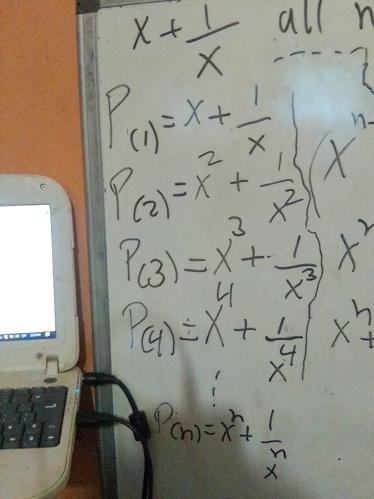 x + 1/x all
P(1) = x + 1/x
P(2) = x² + 1/x²
P(3) = x³ + 1/x³
P(4) = x⁴ + 1/x⁴
⋮
P(n) = xⁿ + 1/xⁿ
(xⁿ
xⁿ
xⁿ +